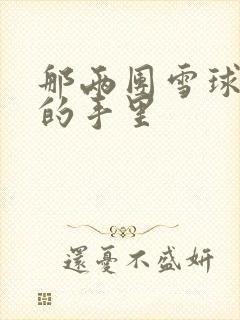 那兩團雪球
的手里
還憂不盛妍